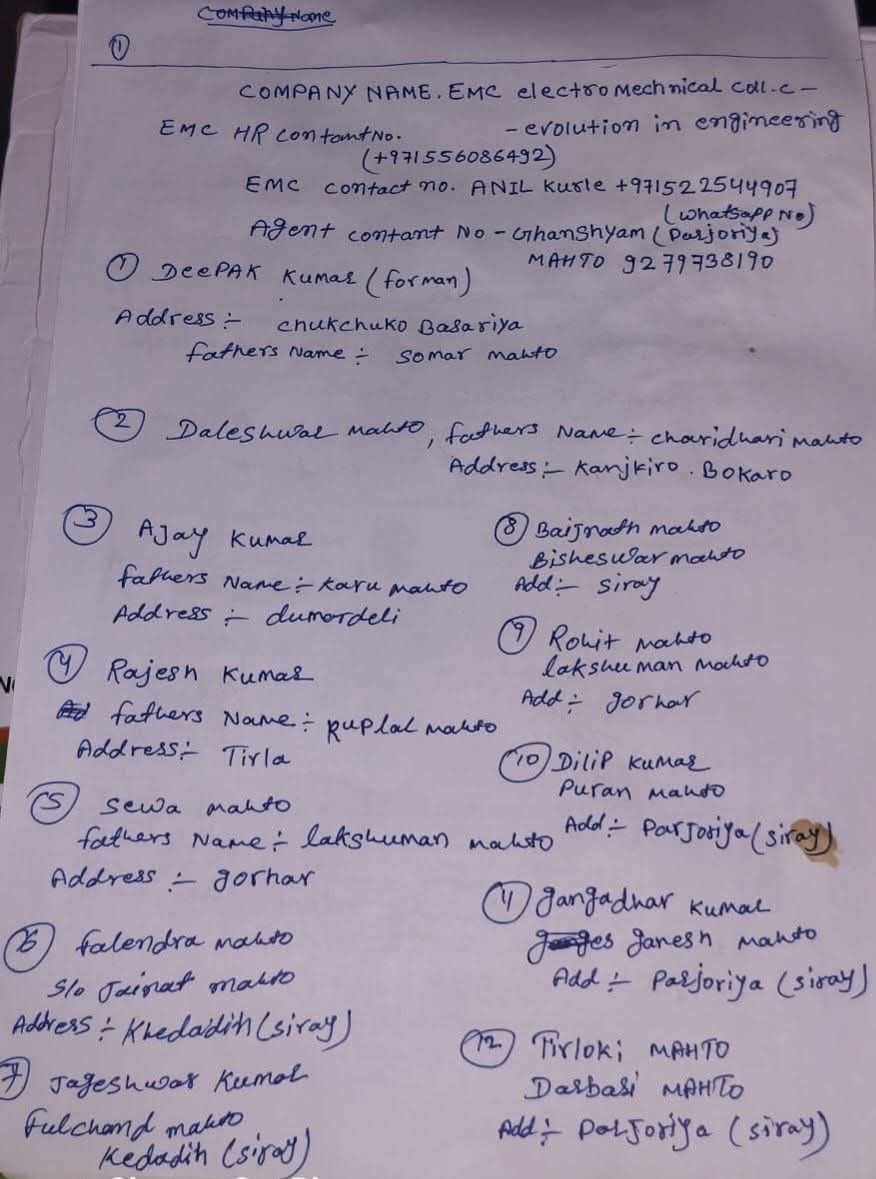 Company Name
①
COMPANY NAME. EMC electro Mechnical coll.c –
– evolution in engineering
EMC HR contamt No.
(+971556086492)
EMC contact no. ANIL Kusle +971522544907
(whatsapp No)
Agent contant No – Ghanshyam (Parjoriya)
MAHTO 9279738190
① Deepak Kumar (forman)
Address :- chukchuko Basariya
fathers Name :- somar mahto
② Daleshwar mahto, fathers Name :- charidhari mahto
Address :- Kanjkiro . Bokaro
③ Ajay Kumar
fathers Name :- karu mahto
Address :- dumardeli
④ Rajesh Kumar
fathers Name :- Ruplal mahto
Address :- Tirla
⑤ sewa mahto
fathers Name :- lakshuman mahto
Address :- gorhar
⑥ falendra mahto
S/o Jainat mahto
Address :- Khedadih (siray)
⑦ Jageshwar Kumar
Fulchand mahto
Kedadih (siray)
⑧ Baijnath mahto
Bisheswar mahto
Add :- siray
⑨ Rohit mahto
lakshuman mahto
Add :- gorhar
⑩ Dilip Kumar
Puran mahto
Add :- Parjoriya (siray)
⑪ gangadhar Kumar
ganesh mahto
Add :- Parjoriya (siray)
⑫ Tirloki MAHTO
Darbari MAHTO
Add :- Parjoriya (siray)